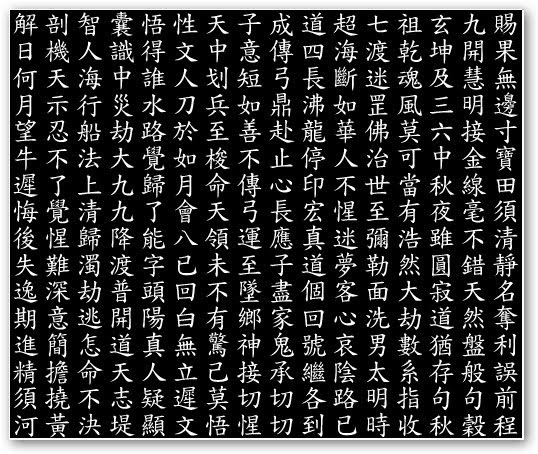 賜果無邊寸寶田須清靜名奪利誤前程
九開慧明接金線毫不錯天然盤般句穀
玄坤及三六中秋夜雖圓寂道猶存句秋
祖乾魂風莫可當有浩然大劫數系指收
七渡迷罡佛治世至彌勒面洗男太明時
超海斷如華人不惺迷夢客心哀陰路已
道四長沸龍停印宏真道個回號繼各到
成傳弓鼎赴止心長應子盡家鬼承切切
子意短如善不傳弓運至墜鄉神接切惺
天中划兵至梭命天領未不有驚己莫悟
性文人刀於如月會八已回白無立遲文
悟得誰水路覺歸了能字頭陽真人疑顯
囊識中災劫大九九降渡普開道天志堤
智人海行船法上清歸濁劫逃怎命不決
剖機天示忍不了覺惺難深意簡擔撓黃
解日何月望牛遲悔後失逸期進精須河